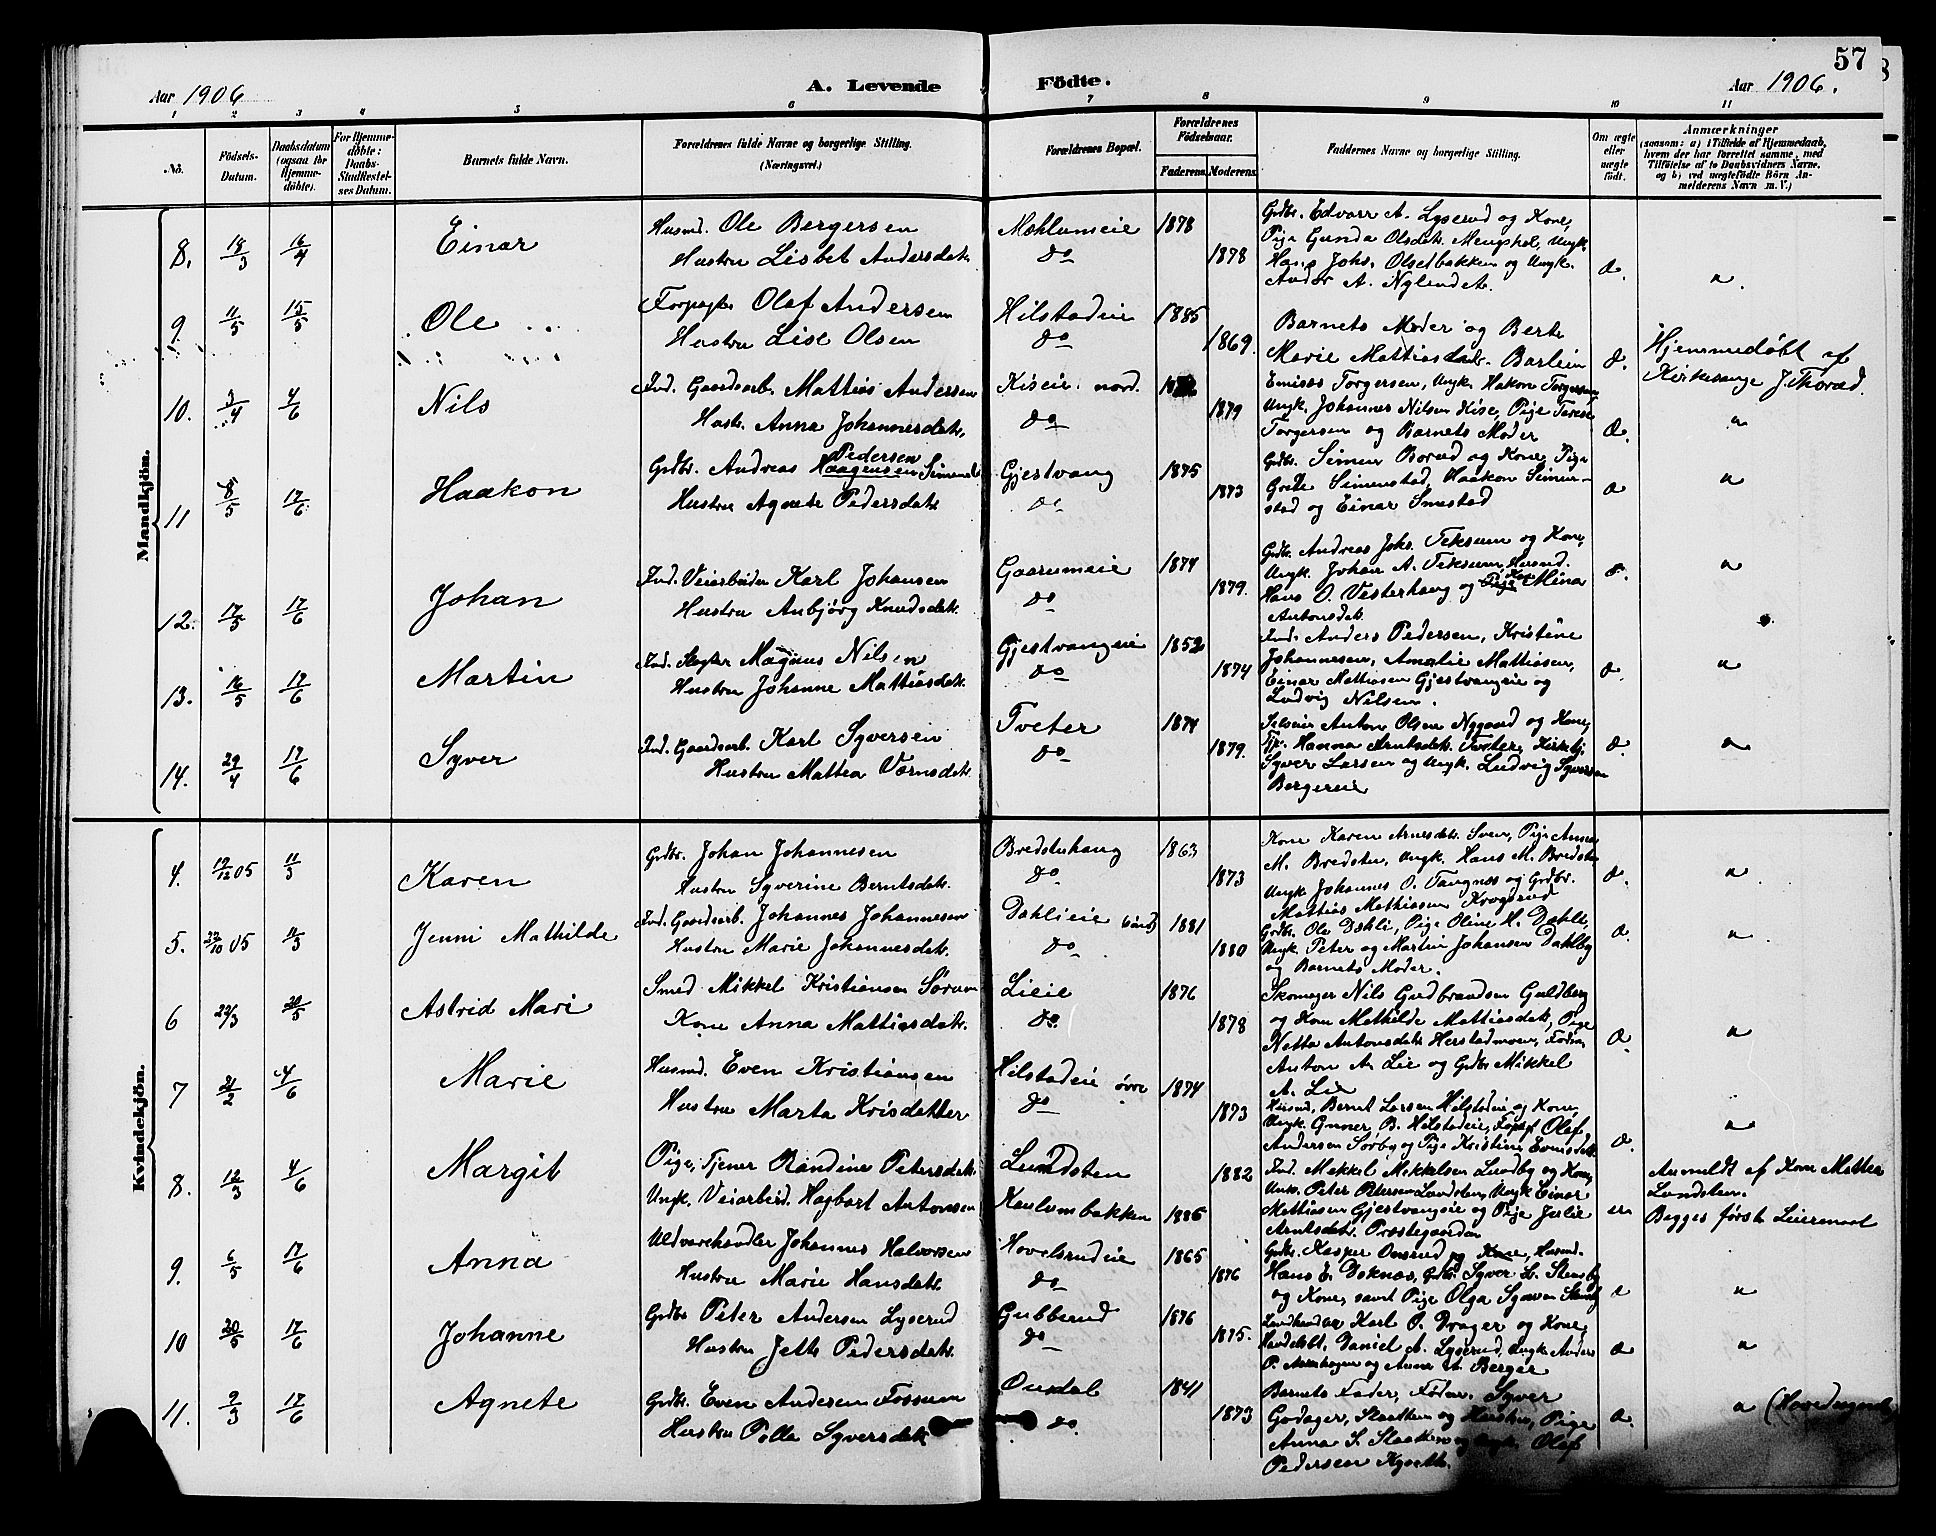 57
Aar 1906
A. Levende
Födte.
Aar 1906.
1 2 3 4 5 6 7 8 9 10 11
No.
Födsels-Datum.
Daabsdatum (ogsaa for Hjemme-döbte).
For Hjemme-döbte: Daabs-Stadfæstel-ses Datum.
Barnets fulde Navn.
Forældrenes fulde Navne og borgerlige Stilling. (Næringsvei.)
Forældrenes Bopæl.
Forældrenes Födselsaar.
Faderens. Moderens.
Faddernes Navne og borgerlige Stilling.
Om ægte eller uægte födt.
Anmærkninger
(saasom: a) i Tilfælde af Hjemmedaab, hvem der har forrettet samme, med Tilföielse af to Daabsvidners Navne. og b) ved uægtefödte Börn An-melderens Navn m. V.)
Mandkjön.
8. 18/3 16/4 Einar
Husmd. Ole Bergersen
Hustru Lisbet Andersdatr.
Mohlumeie 1878
do 1878
Grdbr. Edvart A. Lyserud og Kone,
Pige Gunda Olsdatr. Mengshol, Ungk.
Hans Johs. Olsetbakken og Ungk.
Andor A. Nylendet.
9. 11/5 15/5 Ole
Forpagter Olaf Andersen
Hustru Lise Olsen
Hilstadeie 1885
do 1869.
Barnets Moder og Berte
Marie Mattiasdatr. Barlien
Hjemmedøbt af
Kirkesanger J. Thorud.
10. 3/4 4/6 Nils
Ind. Gaardsarb. Mattias Andersen
Hustr. Anna Johannesdatr.
Kiseie nord.
do 1879
Torgersen, Ungk. Hakon Torgersen
Ungk. Johannes Nilsen Kise, Pige
Torgersen og Barnets Moder
11 8/5 17/6 Haakon
Pedersen
Grdbr. Andreas Haagensen
Hustru Agnete Pedersdatr.
Gjestvang 1875
do 1873
Grdbr. Simen Borud og Kone, Pige
Grete Simenstad, Haakon Simen-
stad og Einar Smestad
12. 17/5 17/6 Johan
Ind. Veiarbeider Karl Johansen
Hustru Anbjørg Knudsdatr.
Gaarumeie 1874
do 1879.
Grdbr. Andreas Johs. Teksum og Kone,
Ungk. Johan A. Teksum, Husmd.
Hans O. Vesterhaug og Pige Mina
Antonsdatr.
13. 16/5 17/6 Martin
Ind. Slagter Magnus Nilsen
Hustru Johanne Mattiasdatr.
Gjestvangeie 1852
do 1874
Ind. Anders Pedersen, Kristine
Johannesen, Amalie Mattiasen,
Einar Mattiasen Gjestvangeie og
Ludvig Nilsen.
14. 29/4 17/6 Syver
Ind. Gaardsarb. Karl Syversen
Hustru Mattea
Tveter 1874
do 1879.
Anton Olsen Nygaard og Kone,
Tjr. Hanna Arntsdatr. Tveter, Kirketj.
Syver Larsen og Ungk. Ludvig Syversen
Bergereie
Kvindekjön.
4. 19/12 05 11/3 Karen
Grdbr. Johan Johannesen
Hustru Syverine Berntsdatr.
Bredstuhaug 1863
do 1873
Kone Karen Arnesdatr. Sven, Pige Anna
M. Bredsten, Ungk. Hans M. Bredsten
Ungk Johannes O. Tangnæs og Grdbr.
Mattias Mathiasen Krogsrud
5. 22/10 05 11/3 Jenni Mathilde
Ind. Gaardsarb. Johannes Johannesen
Hustru Marie Johannesdatr.
Dahlieie 1881
do 1880
Grdbr. Ole Dahli, Pige Oline H. Dahli,
Ungk. Peter og Martin Johansen Dahlby
og Barnets Moder.
6 22/3 20/5 Astrid Mari
Smed Mikkel Kristiansen
Kone Anna Mattiasdatr.
Lieie 1876
do. 1878
Skomager Nils Gudbrandsen Guldberg
og Kone Mathilde Mattiasdatr, Pige
Netta Antonsdatr. Herstadmoen, Føder.
Anton A. Lie og Grdbr Mikkel
A. Lie
7 21/2 4/6 Marie
Husmd. Even Kristiansen
Hustru Marta Krisdatter
Hilstadeie øvre 1874
do 1873
Husmd. Bernt Larsen Hilstadeie og Kone,
Ungk. Gunner B. Hilstadeie, Forpgt Olaf
Andersen Sørby og Pige Kristine Evensdatr.
8. 12/3 4/6 Margit
Pige, Tjener Randine Petersdatr.
Ungk. Veiarbeid. Hagbart Antonsen
Lundsten 1882
Kaulumbakken 1886
Ind. Mikkel Mikkelsen Lundby og Kone,
Ungk. Peter Petersen Lundsten, Ungk Einar
Mattiasen Gjestvangeie og Pige Julie
Arntsdatr. Præstegaarden
u
Anmeldt af Kone Mattea
Lundsten.
Begges første Leiermaal
9. 6/5 17/6 Anna
Uldvarehandler Johannes Halvorsen
Hustru Marie Hansdatr.
Hovelsrudeie 1865
do 1876
Grdbr. Kasper Onsrud og Kone, Husmd.
Hans E. Doknæs, Grdbr. Syver L. Stensby
og Kone, samt Pige Olga
10 20/5 17/6 Johanne
Grdbr Peter Andersen Lyserud
Hustru Jette Pedersdatr.
Gubberud 1876
do 1875.
Landhandler Karl O. Drager og Kone,
Handelsbt. Daniel A. Lyserud, Ungk Anders
P. og Anne A. Berger
11. 9/3 17/6 Agnete
Grdbr. Even Andersen Fossum
Hustru Pelle Syversdatr.
Ousdal 1841
do. 1873
Barnets Fader, Føder. Syver
Godager, Staatten og Hustru, Pige
Anna S. Staatten og Ungk. Olaf
Pedersen